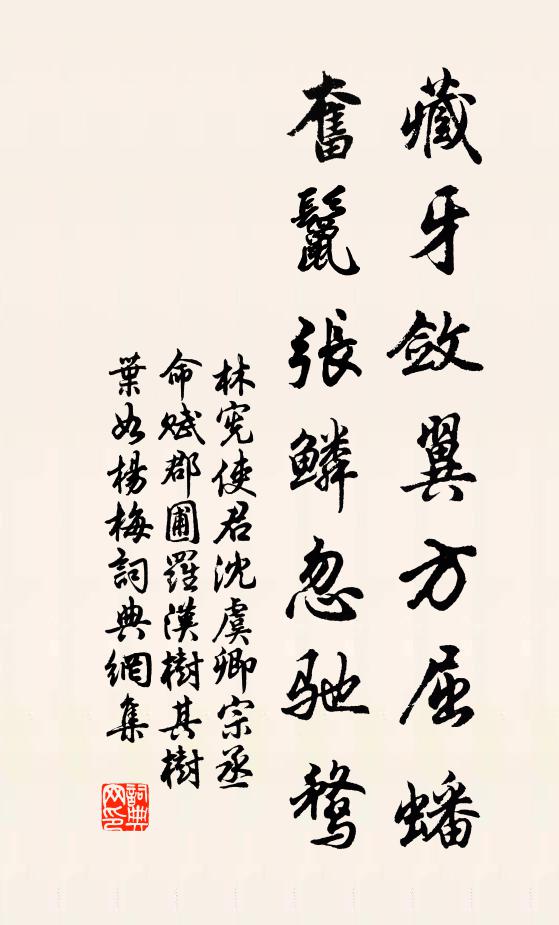 藏牙斂翼方屈蟠
奮鬣張鱗忽馳騖
林宪使君沈虞卿宗丞
命赋郡圃羅漢樹其樹
葉如楊梅詞典網集
詞典网印